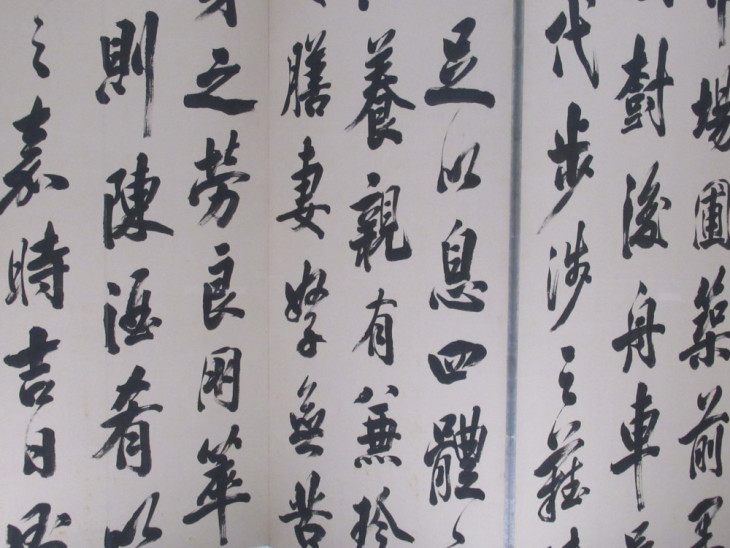 場圃築前
樹後舟車
代步涉之難
足以息四體
養親有兼珍
膳妻孥無苦
之勞良朋萃
則陳酒肴以
之嘉時吉日